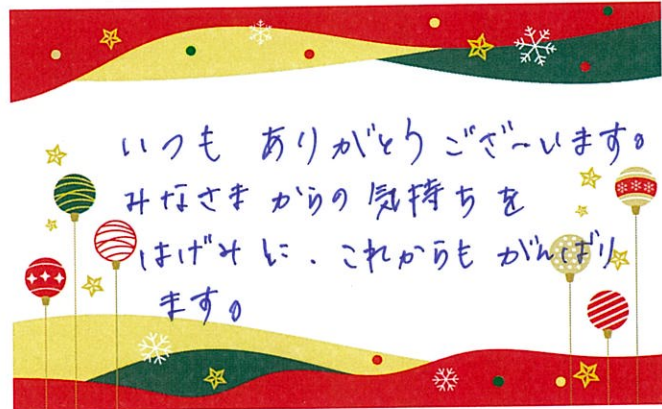 いつも ありがとうございます。
みなさまからの気持ちを
はげみに、これからもがんばり
ます。